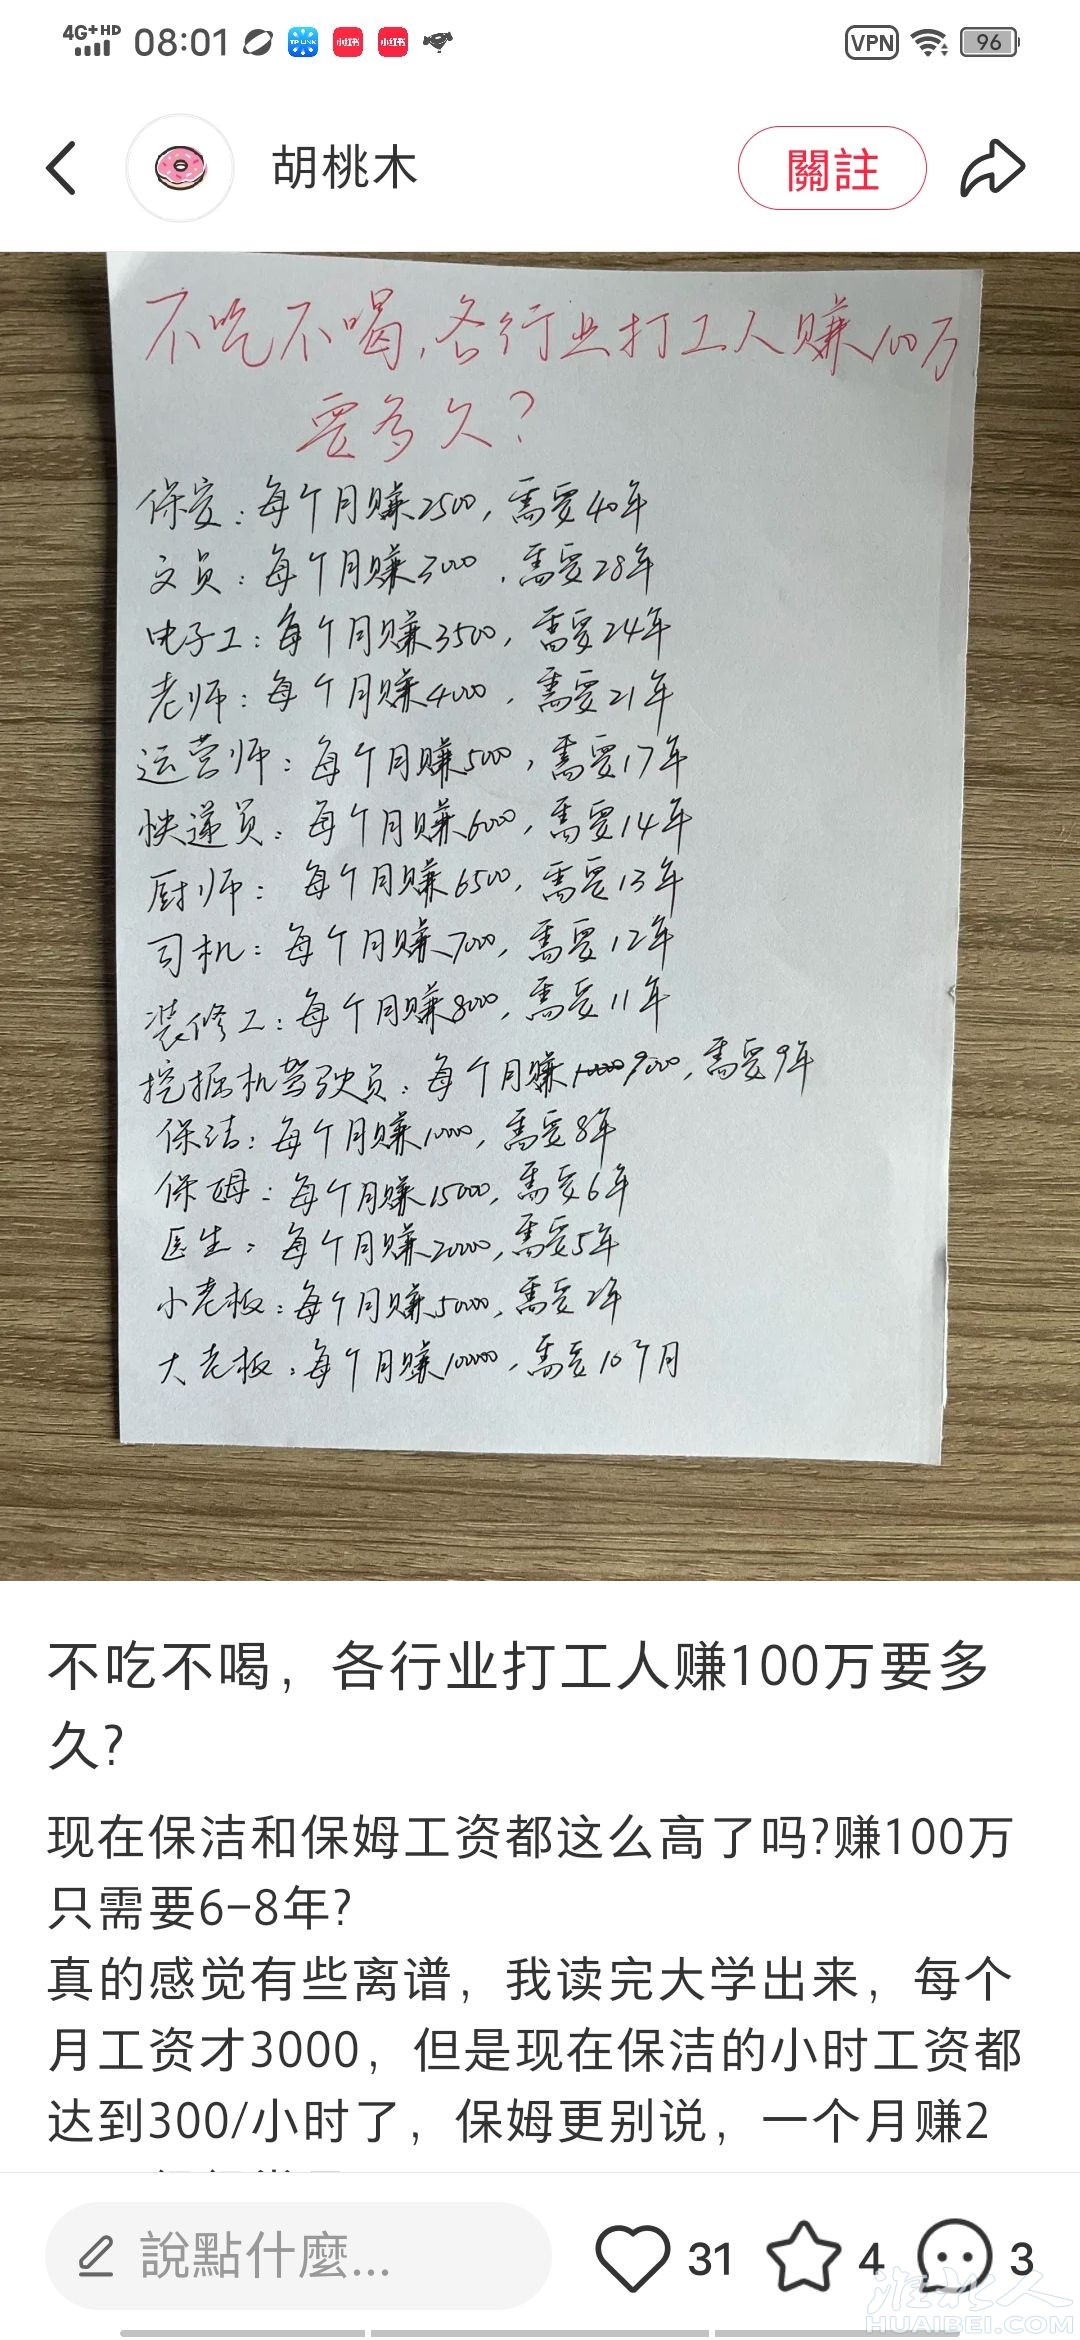 4G+HD 08:01 VPN 96
胡桃木 關註
不吃不喝,各行业打工人赚100万
要多久?
保安:每个月赚2500,需要40年
文员:每个月赚3000,需要28年
电子工:每个月赚3500,需要24年
老师:每个月赚4000,需要21年
运营师:每个月赚5000,需要17年
快递员:每个月赚6000,需要14年
厨师:每个月赚6500,需要13年
司机:每个月赚7000,需要12年
装修工:每个月赚8000,需要11年
挖掘机驾驶员:每个月赚9000,需要9年
保洁:每个月赚1000,需要8年
保姆:每个月赚15000,需要6年
医生:每个月赚20000,需要5年
小老板:每个月赚50000,需要2年
大老板:每个月赚100000,需要10个月
不吃不喝，各行业打工人赚100万要多
久?
现在保洁和保姆工资都这么高了吗?赚100万
只需要6-8年?
真的感觉有些离谱，我读完大学出来，每个
月工资才3000，但是现在保洁的小时工资都
达到300/小时了，保姆更别说，一个月赚2
說點什麼... 31 4 3
淮北人
HUAIBEI.COM